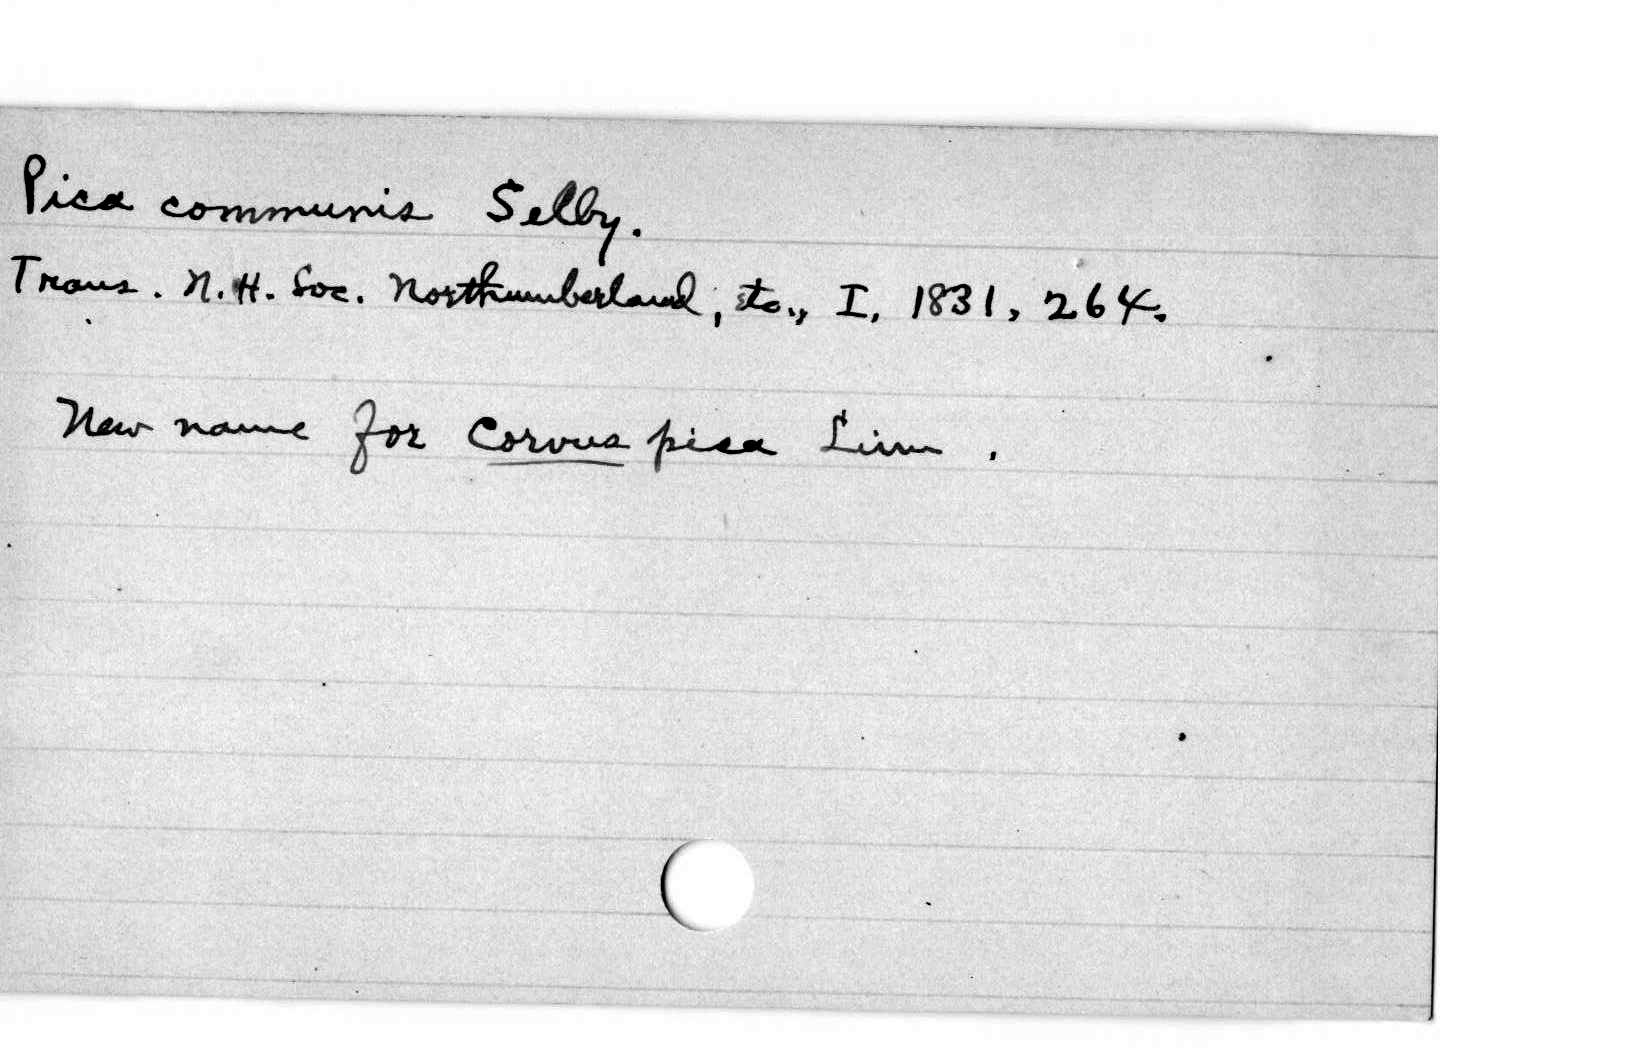 Pica communis Selby.
Trans. N.H. Soc. Northumberland, etc., I, 1831, 264.
New name for Corvus pica Linn.